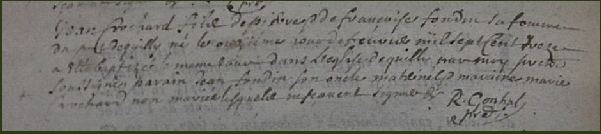 Jean frochard fils de pierre et de francoise fondin sa femme
da ne le onzieme jour de feuvrier mil sept cent treze
a este baptizé le meme jour dans leglise de quilly par moy pretre
parain jean fondin son oncle maternel et maraine marie
frochard non mariés lesquels ne scavent signer
R. Gouhal
ptre